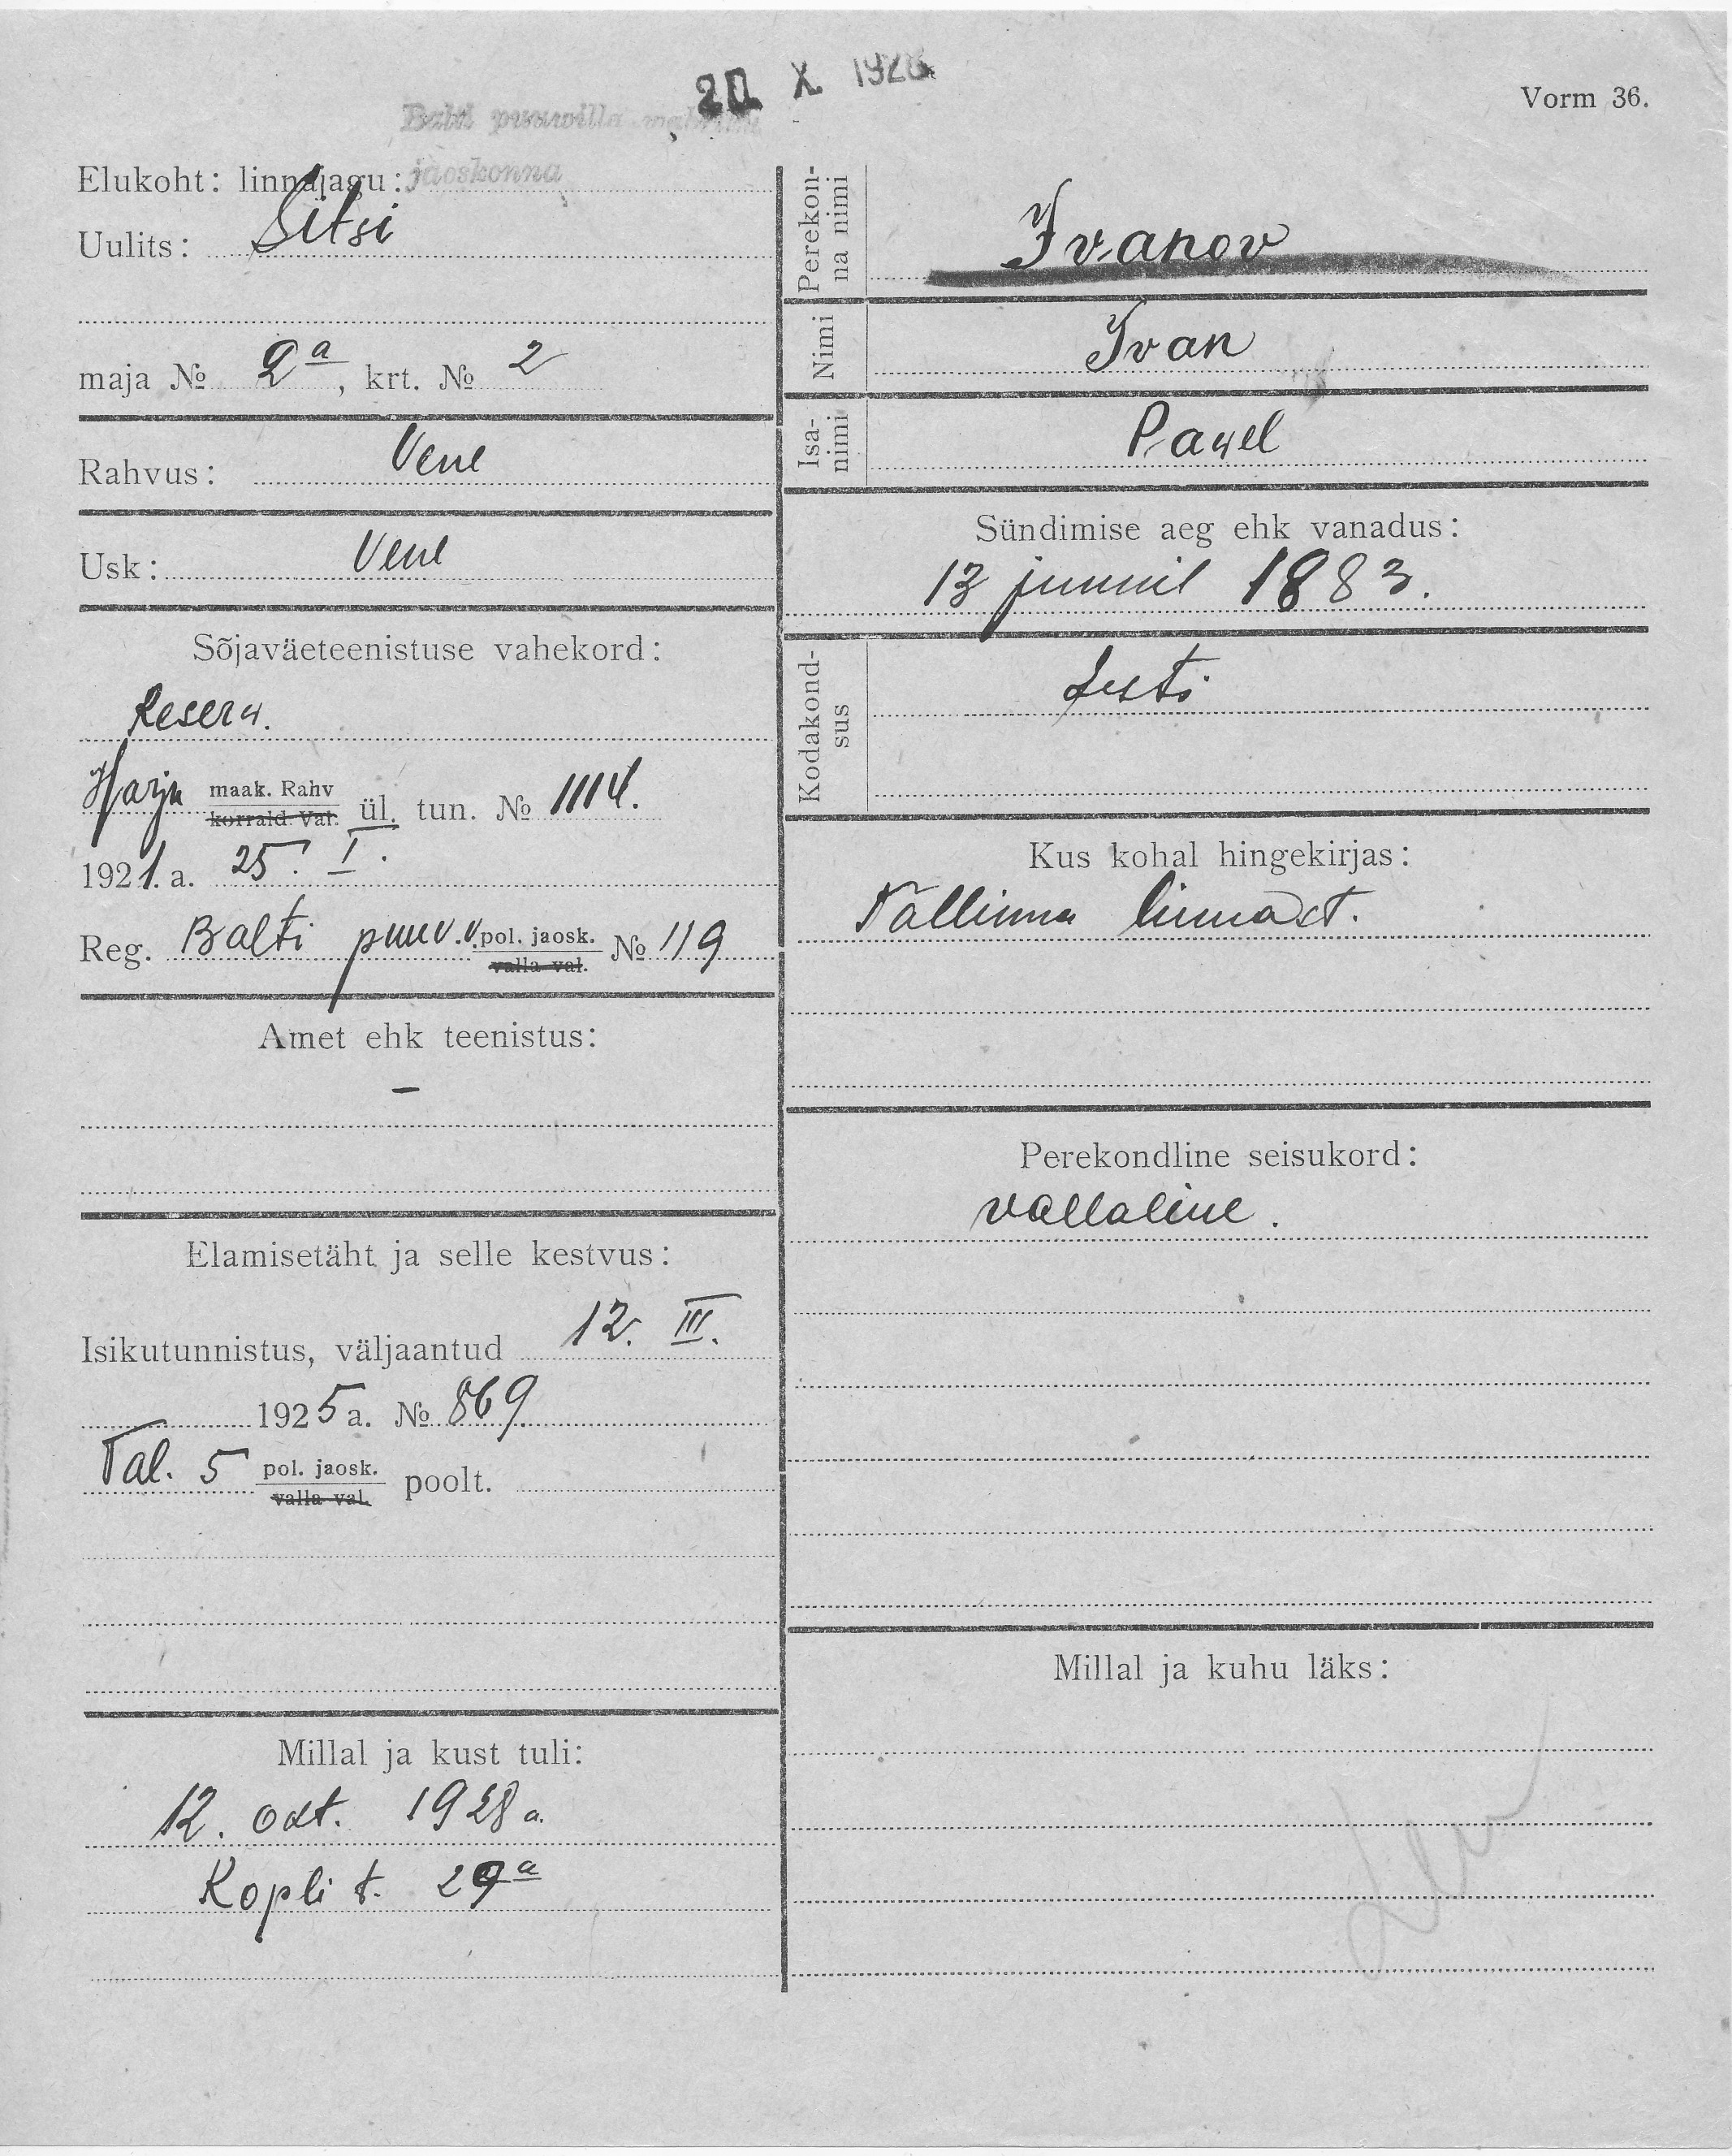 20 X 1928
Vorm 36.
Balti puuvilla
jaoskonna
Elukoht: linnajagu:
Uulits: Sitsi
maja № 2a, krt. № 2
Rahvus: Vene
Usk: Vene
Sõjaväeteenistuse vahekord:
Reserv.
Harju maak. Rahv
korrald. Val. ül. tun. № 1114.
1921. a. 25. I.
Reg. Balti puuv.v. pol. jaosk. № 119
valla val.
Amet ehk teenistus:
–
Elamisetäht ja selle kestvus:
Isikutunnistus, väljaantud 12. III.
1925 a. № 869
Tal. 5 pol. jaosk. poolt.
valla val.
Millal ja kust tuli:
12. okt. 1928 a.
Kopli t. 29a
Perekon-
na nimi
Ivanov
Nimi
Ivan
Isa-
nimi
Pawel
Sündimise aeg ehk vanadus:
13 juunil 1883.
Kodakond-
sus
Eesti
Kus kohal hingekirjas:
Tallinna linnast.
Perekondline seisukord:
vallaline.
Millal ja kuhu läks: